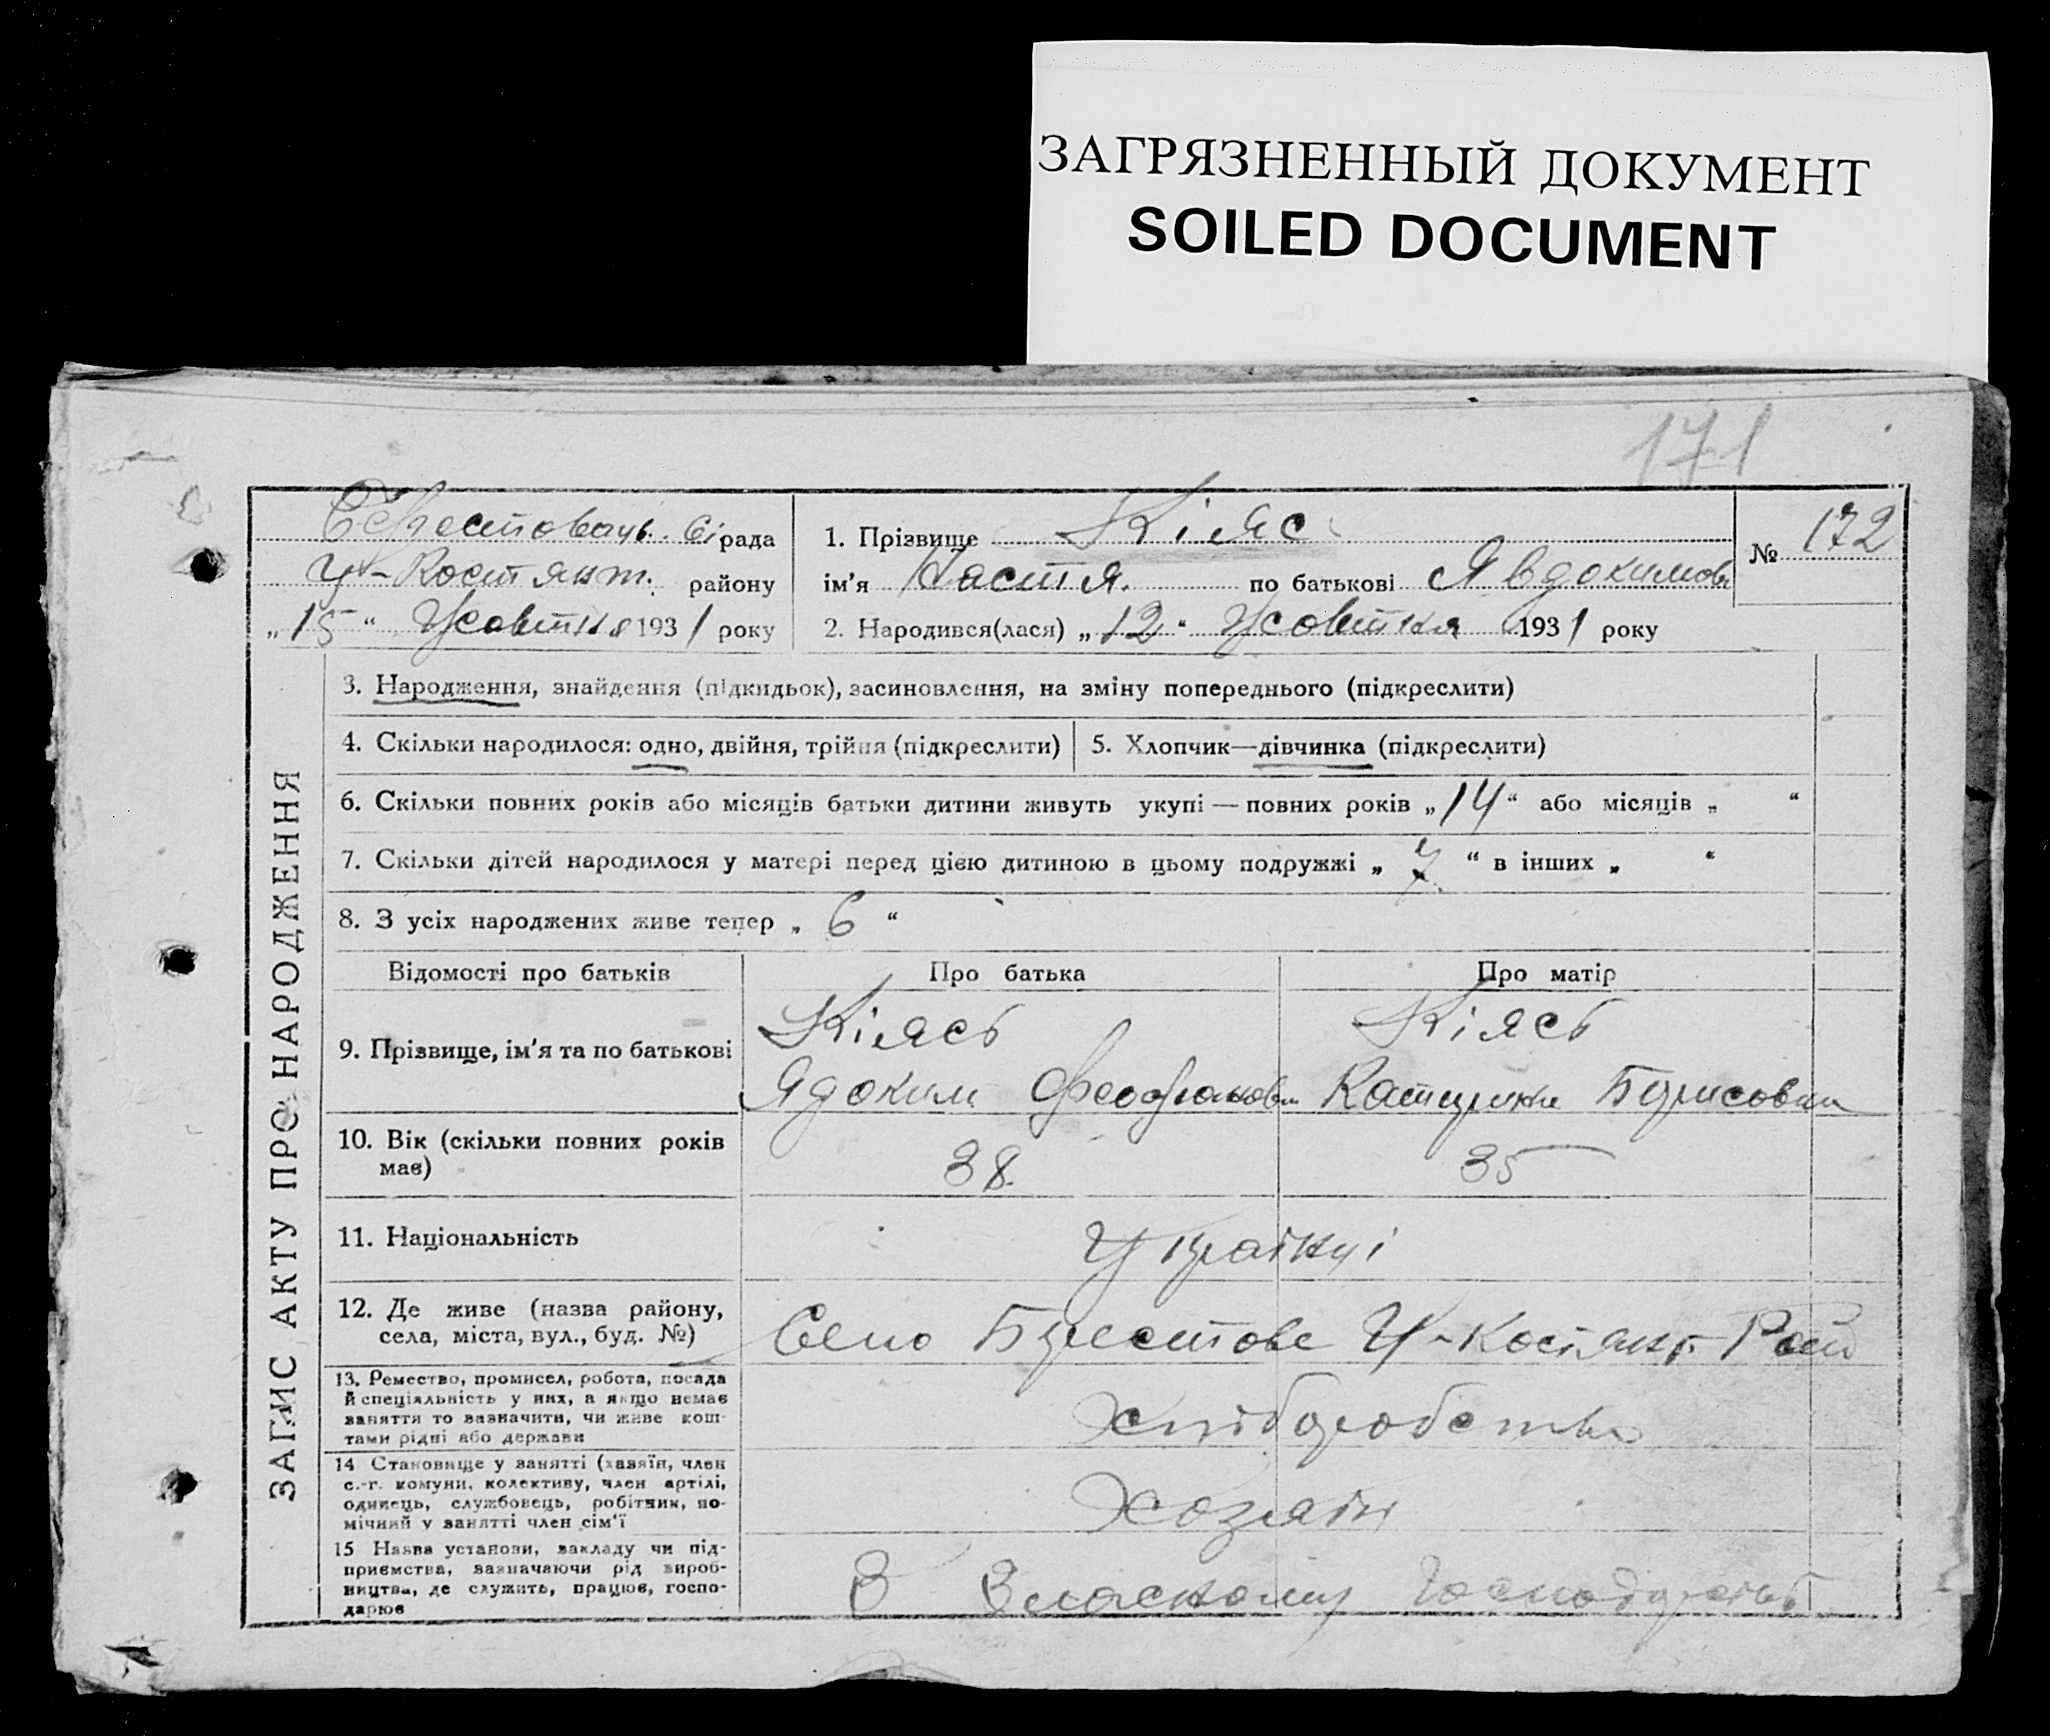 ЗАГРЯЗНЕННЫЙ ДОКУМЕНТ
SOILED DOCUMENT
171
рада
У-Костянт. району
"15" Жовтня 1931 року
1. Прізвище Кіяс
ім'я Настя. по батькові Явдокимовн
2. Народився(лася) "12" Жовтня 1931 року
№ 172
ЗАПИС АКТУ ПРО НАРОДЖЕННЯ
3. Народження, знайдення (підкидьок), засиновлення, на зміну попереднього (підкреслити)
4. Скільки народилося: одно, двійня, трійня (підкреслити)
5. Хлопчик—дівчинка (підкреслити)
6. Скільки повних років або місяців батьки дитини живуть укупі — повних років „14“ або місяців „ “
7. Скільки дітей народилося у матері перед цією дитиною в цьому подружжі „7“ в інших „ “
8. З усіх народжених живе тепер „6“
Відомості про батьків
Про батька
Про матір
9. Прізвище, ім'я та по батькові
Кіясь
Ядоким
Кіясь
Катерина Борисовна
10. Вік (скільки повних років
має)
38
35
11. Національність
Українці
12. Де живе (назва району,
села, міста, вул., буд. №)
Село Берестове У-Костянт. Рай
13. Ремество, промисел, робота, посада
й спеціяльність у них, а якщо немає
заняття то зазначити, чи живе кош-
тами рідні або держави
Хліборобство
14 Становище у занятті (хазяїн, член
с.-г. комуни, колективу, член артілі,
одинець, службовець, робітник, по-
мічний у занятті член сім'ї
Хозяїн
15 Назва установи, закладу чи під-
приємства, зазначаючи рід вироб-
ництва, де служить, працює, госпо-
дарює
В Власному Господарстві